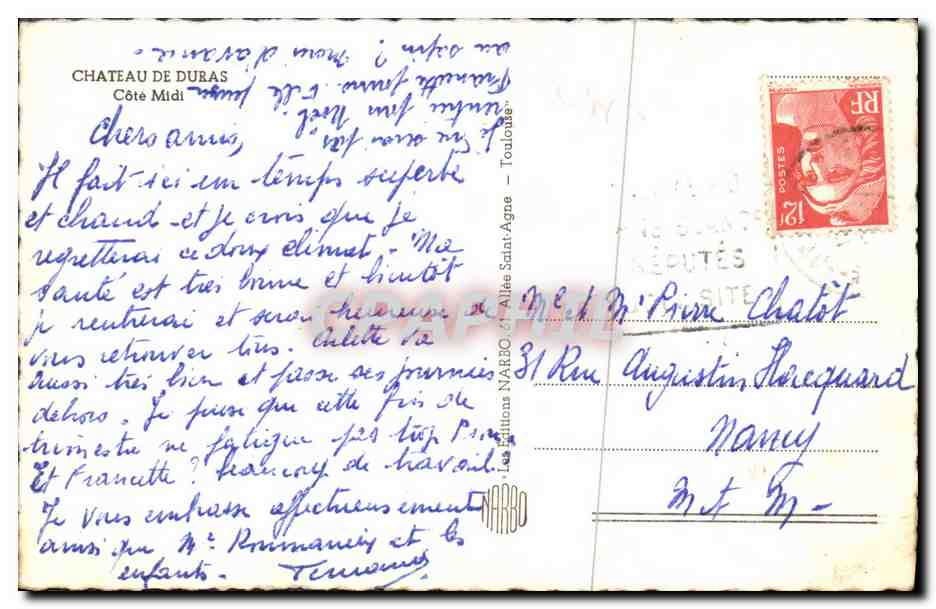 CHATEAU DE DURAS
Côté Midi
Chers amis,
Il fait ici un temps superbe
et chaud - et je crois que je
regretterai ce doux climat - Ma
santé est très bonne et bientôt
je rentrerai et serai heureuse de
vous retrouver tous. Arlette va
aussi très bien et passe ses journées
dehors. Je pense que cette fin de
trimestre ne fatigue pas trop Pierre
Et Francette ? beaucoup de travail.
Je vous embrasse affectueusement
ainsi que Me et les
enfants -
Je ne serai pas
rentrée pour Noël.
Francette pourra-t-elle penser
au sapin ? Merci d'avance.
Les Editions NARBO, 61 Allée Saint-Agne — Toulouse
NARBO
CPARAMA
RF
POSTES
12F
RÉPUTÉS
SITE
Me et Mr Pierre Chatôt
31 Rue Augustin Hacquard
Nancy
M et M -